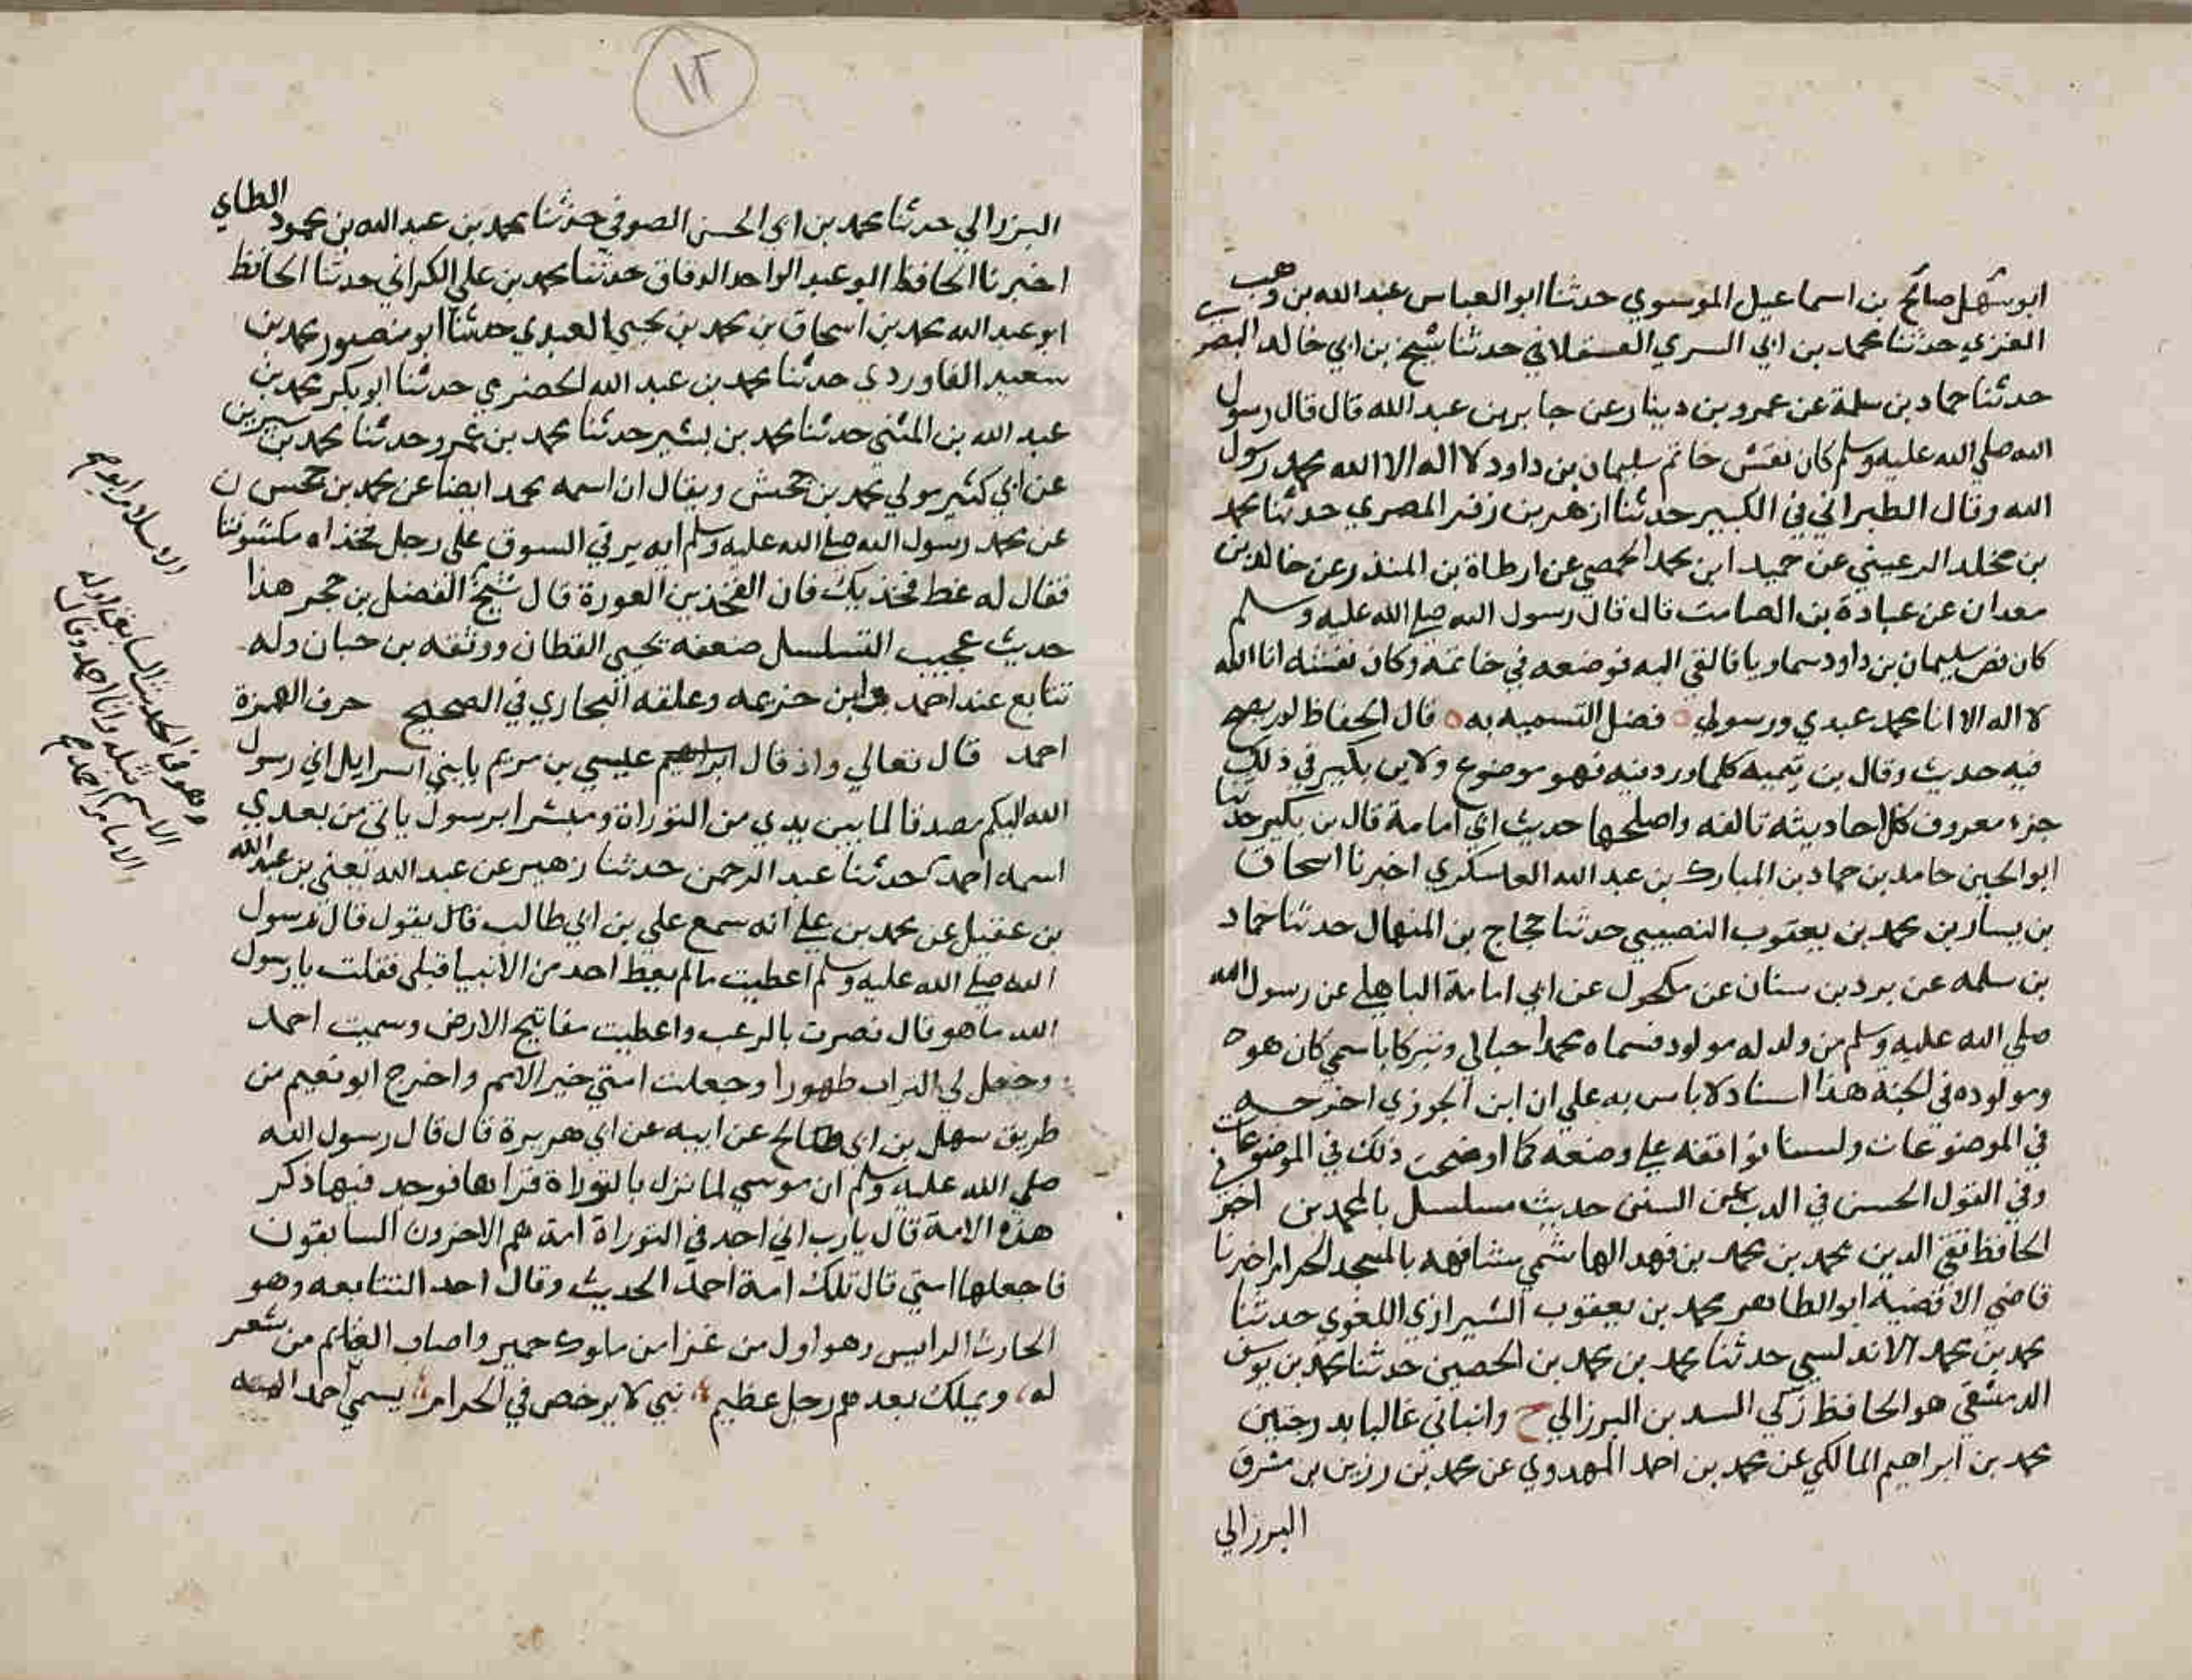 ابو سهل صالح بن اسماعيل الموسوي حدثنا ابو العباس عبد الله بن وهب
الغزي حدثنا محمد بن ابي السري العسقلاني حدثنا شيخ بن ابي خالد البصري
حدثنا حماد بن سلمة عن عمرو بن دينار عن جابر بن عبد الله قال قال رسول
الله صلي الله عليه وسلم كان نقش خاتم سليمان بن داود لا اله الا الله محمد رسول
الله وقال الطبراني في الكبير حدثنا ازهر بن زفر المصري حدثنا محمد
بن مخلد الرعيني عن حميد ابن محمد الحمصي عن ارطاة بن المنذر عن خالد بن
معدان عن عبادة بن الصامت قال قال رسول الله صلي الله عليه وسلم
كان فص سليمان بن داود سماويا فالقي اليه فوضعه في خاتمه وكان نقشه انا الله
لا اله الا انا محمد عبدي ورسولي فضل التسميه به قال الحفاظ لم يصح
فيه حديث وقال بن تيميه كلما ورد فيه فهو موضوع ولابن بكير في ذلك
جزء معروف كل احاديثه تالفه واصلحها حديث ابي امامة قال بن بكير حدثنا
ابو الحسين حامد بن حماد بن المبارك بن عبد الله العاسكري اخبرنا اسحاق
بن يسار بن محمد بن يعقوب النصيبي حدثنا حجاج بن المنهال حدثنا حماد
بن سلمه عن برد بن سنان عن مكحول عن ابي امامة الباهلي عن رسول الله
صلي الله عليه وسلم من ولد له مولود فسماه محمدا حبا لي وتبركا باسمي كان هو
ومولوده في الجنة هذا اسناد لا باس به علي ان ابن الجوزي اخرجه
في الموضوعات ولسنا نوافقه علي وضعه كما اوضحت ذلك في الموضوعات
وفي القول الحسن في الذب عن السنن حديث مسلسل بالمحمدين اخبرنا
الحافظ تقي الدين محمد بن محمد بن فهد الهاشمي مشافهه بالمسجد الحرام اخبرنا
قاضي الاقضيه ابو الطاهر محمد بن يعقوب الشيرازي اللغوي حدثنا
محمد بن محمد الاندلسي حدثنا محمد بن محمد بن الحصين حدثنا محمد بن يوسف
الدمشقي هو الحافظ زكي السد بن البرزالي ح وانباني عاليا بدرجتين
محمد بن ابراهيم المالكي عن محمد بن احمد المهدوي عن محمد بن رزين بن مشرق
البرزالي
١٢
البرزالي حدثنا محمد بن ابي الحسن الصوفي حدثنا محمد بن عبد الله بن محمود الطاي
اخبرنا الحافظ ابو عبد الواحد الدقاق حدثنا محمد بن علي الكراني حدثنا الحافظ
ابو عبد الله محمد بن اسحاق بن محمد بن يحيي العبدي حدثنا ابو منصور محمد بن
سعيد الفاوردي حدثنا محمد بن عبد الله الحضرمي حدثنا ابو بكر محمد بن
عبد الله بن المثني حدثنا محمد بن بشير حدثنا محمد بن عمرو حدثنا محمد بن سيرين
عن ابي كثير مولي محمد بن جحش ويقال ان اسمه محمد ايضا عن محمد بن جحش
عن محمد رسول الله صلي الله عليه وسلم انه مر في السوق علي رجل فخذاه مكشوفتا
فقال له غط فخذيك فان الفخذين العورة قال شيخ الفضل بن حجر هذا
حديث عجيب التسلسل ضعفه يحيي القطان ووثقه بن حبان وله
تتابع عند احمد وابن خزيمه وعلقه البخاري في الصحيح حرف الهمزة
احمد قال تعالي واذ قال ابراهيم عيسي بن مريم يا بني اسرايل اني رسول
الله اليكم مصدقا لما بين يدي من التوراة ومبشرا برسول ياتي من بعدي
اسمه احمد حدثنا عبد الرحمن حدثنا زهير عن عبد الله يعني بن عبد الله
بن عقيل عن محمد بن علي انه سمع علي بن ابي طالب قال يقول قال رسول
الله صلي الله عليه وسلم اعطيت ما لم يعط احد من الانبيا قبلي فقلت يا رسول
الله ما هو قال نصرت بالرعب واعطيت مفاتيح الارض وسميت احمد
وجعل لي التراب طهورا وجعلت امتي خير الامم واخرج ابو نعيم من
طريق سهل بن ابي صالح عن ابيه عن ابي هريرة قال قال رسول الله
صلي الله عليه وسلم ان موسي لما نزل بالتوراة قراها فوجد فيها ذكر
هذه الامة قال يا رب اني اجد في التوراة امة هم الاخرون السابقون
فاجعلها امتي قال تلك امة احمد الحديث وقال احد التتابعه وهو
الحارث الرايس وهو اول من غزا من ملوك حمير واصاب الغنايم من شعر
له، ويملك بعدهم رجل عظيم، نبي لا يرخص في الحرام، يسمي احمد
وهو في الحديث السابق اوله
الاسم مثله وانا احمد وقال